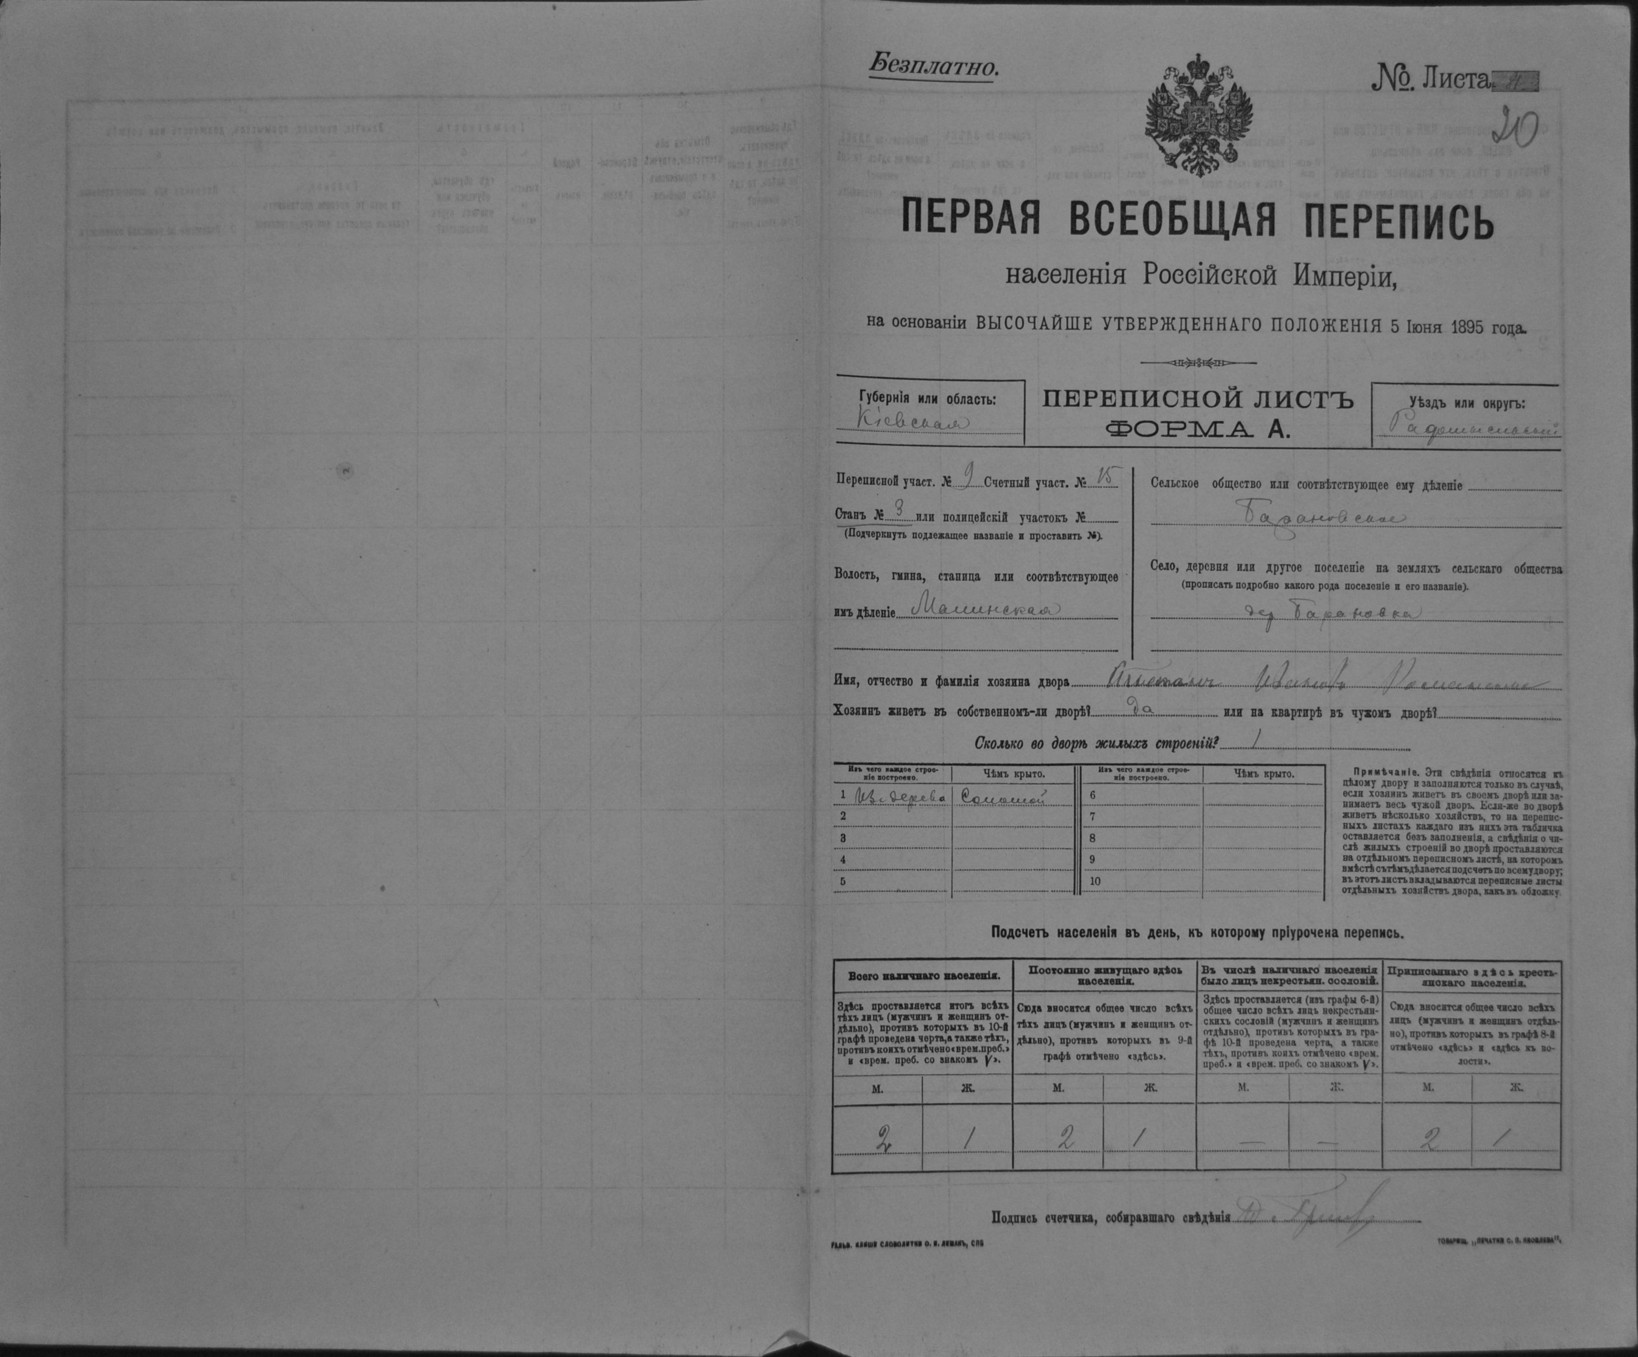 Безплатно.
№. Листа
20
ПЕРВАЯ ВСЕОБЩАЯ ПЕРЕПИСЬ
населенія Россійской Имперіи,
на основаніи ВЫСОЧАЙШЕ УТВЕРЖДЕННАГО ПОЛОЖЕНІЯ 5 Іюня 1895 года.
Губернія или область:
Кіевская
ПЕРЕПИСНОЙ ЛИСТЪ
ФОРМА А.
Уѣздъ или округъ:
Радомысльскій
Переписной участ. № 9 Счетный участ. № 15
Станъ № 3 или полицейскій участокъ №
(Подчеркнуть подлежащее названіе и проставить №).
Волость, гмина, станица или соотвѣтствующее
имъ дѣленіе Малинская
Сельское общество или соотвѣтствующее ему дѣленіе
Барановское
Село, деревня или другое поселеніе на земляхъ сельскаго общества
(прописать подробно какого рода поселеніе и его названіе).
дер Барановка
Имя, отчество и фамилія хозяина двора Ивановъ
Хозяинъ живетъ въ собственномъ-ли дворѣ? Да или на квартирѣ въ чужомъ дворѣ?
Сколько во дворѣ жилыхъ строеній? 1
Изъ чего каждое строе-
ніе построено.
Чѣмъ крыто.
Изъ чего каждое строе-
ніе построено.
Чѣмъ крыто.
1 Из дерева Соломой 6
2 7
3 8
4 9
5 10
Примѣчаніе. Эти свѣдѣнія относятся къ
цѣлому двору и заполняются только въ случаѣ,
если хозяинъ живетъ въ своемъ дворѣ или за-
нимаетъ весь чужой дворъ. Если-же во дворѣ
живетъ нѣсколько хозяйствъ, то на перепис-
ныхъ листахъ каждаго изъ нихъ эта табличка
оставляется безъ заполненія, а свѣдѣнія о чи-
слѣ жилыхъ строеній во дворѣ проставляются
на отдѣльномъ переписномъ листѣ, на которомъ
вмѣстѣ съ тѣмъ дѣлается подсчетъ по всему двору;
въ этотъ листъ вкладываются переписные листы
отдѣльныхъ хозяйствъ двора, какъ въ обложку.
Подсчетъ населенія въ день, къ которому пріурочена перепись.
Всего наличнаго населенія.
Постоянно живущаго здѣсь
населенія.
Въ числѣ наличнаго населенія
было лицъ некрестьян. сословій.
Приписаннаго здѣсь кресть-
янскаго населенія.
Здѣсь проставляется итогъ всѣхъ
тѣхъ лицъ (мужчинъ и женщинъ от-
дѣльно), противъ которыхъ въ 10-й
графѣ проведена черта, а также тѣхъ,
противъ коихъ отмѣчено «врем. преб.»
и «врем. преб. со знакомъ V».
Сюда вносится общее число всѣхъ
тѣхъ лицъ (мужчинъ и женщинъ от-
дѣльно), противъ которыхъ въ 9-й
графѣ отмѣчено «здѣсь».
Здѣсь проставляется (изъ графы 6-й)
общее число всѣхъ лицъ некрестьян-
скихъ сословій (мужчинъ и женщинъ
отдѣльно), противъ которыхъ въ гра-
фѣ 10-й проведена черта, а также
тѣхъ, противъ коихъ отмѣчено «врем.
преб.» и «врем. преб. со знакомъ V».
Сюда вносится общее число всѣхъ
лицъ (мужчинъ и женщинъ отдѣль-
но), противъ которыхъ въ графѣ 8-й
отмѣчено «здѣсь» и «здѣсь въ во-
лости».
М. Ж. М. Ж. М. Ж. М. Ж.
2 1 2 1 — — 2 1
Подпись счетчика, собиравшаго свѣдѣнія
ГАЛЬВ. КЛИШЕ СЛОВОЛИТНИ О. И. ЛЕМАНЪ, СПБ
ТОВАРИЩ. „ПЕЧАТНЯ С. П. ЯКОВЛЕВА“.